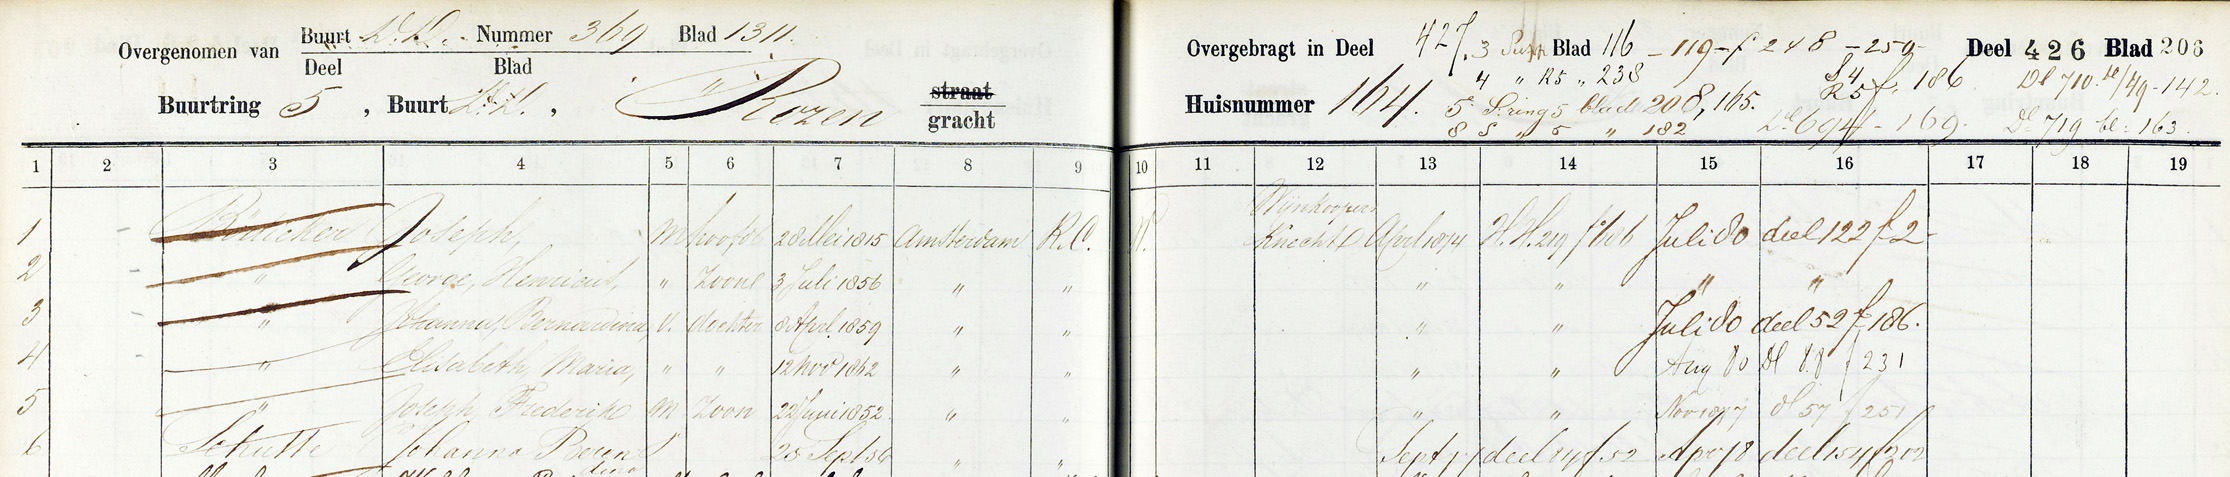 Overgenomen van Buurt L.L. Nummer 369 Blad 1311
Deel Blad
Buurtring 5, Buurt L.L., Rozen straat
gracht
Overgebragt in Deel 427. 3 Blad 116 - 119 - f 248 - 250 - Deel 426 Blad 206
4 " R5 " 238 S4 R5 f. 186 Dl 710. bl 149 - 142.
Huisnummer 164. 5 S. ring 5 blad 208, 165.
8 S " 5 " 182 Dl 694 - 169. Dl 719 bl: 163.
1 2 3 4 5 6 7 8 9 10 11 12 13 14 15 16 17 18 19
Wijnkoopers
1 Böttcher Joseph, M hoofd 28 Mei 1815 Amsterdam R.C. Knecht April 1874 H.H. 219 f 686 Juli 80 deel 122 f 2
2 " George, Henricus, " Zoone 3 Juli 1856 " " " " " "
3 " Johanna, Bernardina, V. dochter 8 April 1859 " " " " Juli 80 deel 52 f 186.
4 " Elisabeth, Maria, " " 12 Nov 1862 " " " " Aug 80 dl 88 f 231
5 " Joseph, Frederik M Zoon 22 Juni 1852 " " " " Nov 1877 dl 57 f 251
6 Schutte Johanna Beren 25 Sept 56 " " Sept 77 deel f 52 Apr 78 deel 154 f 212
dina